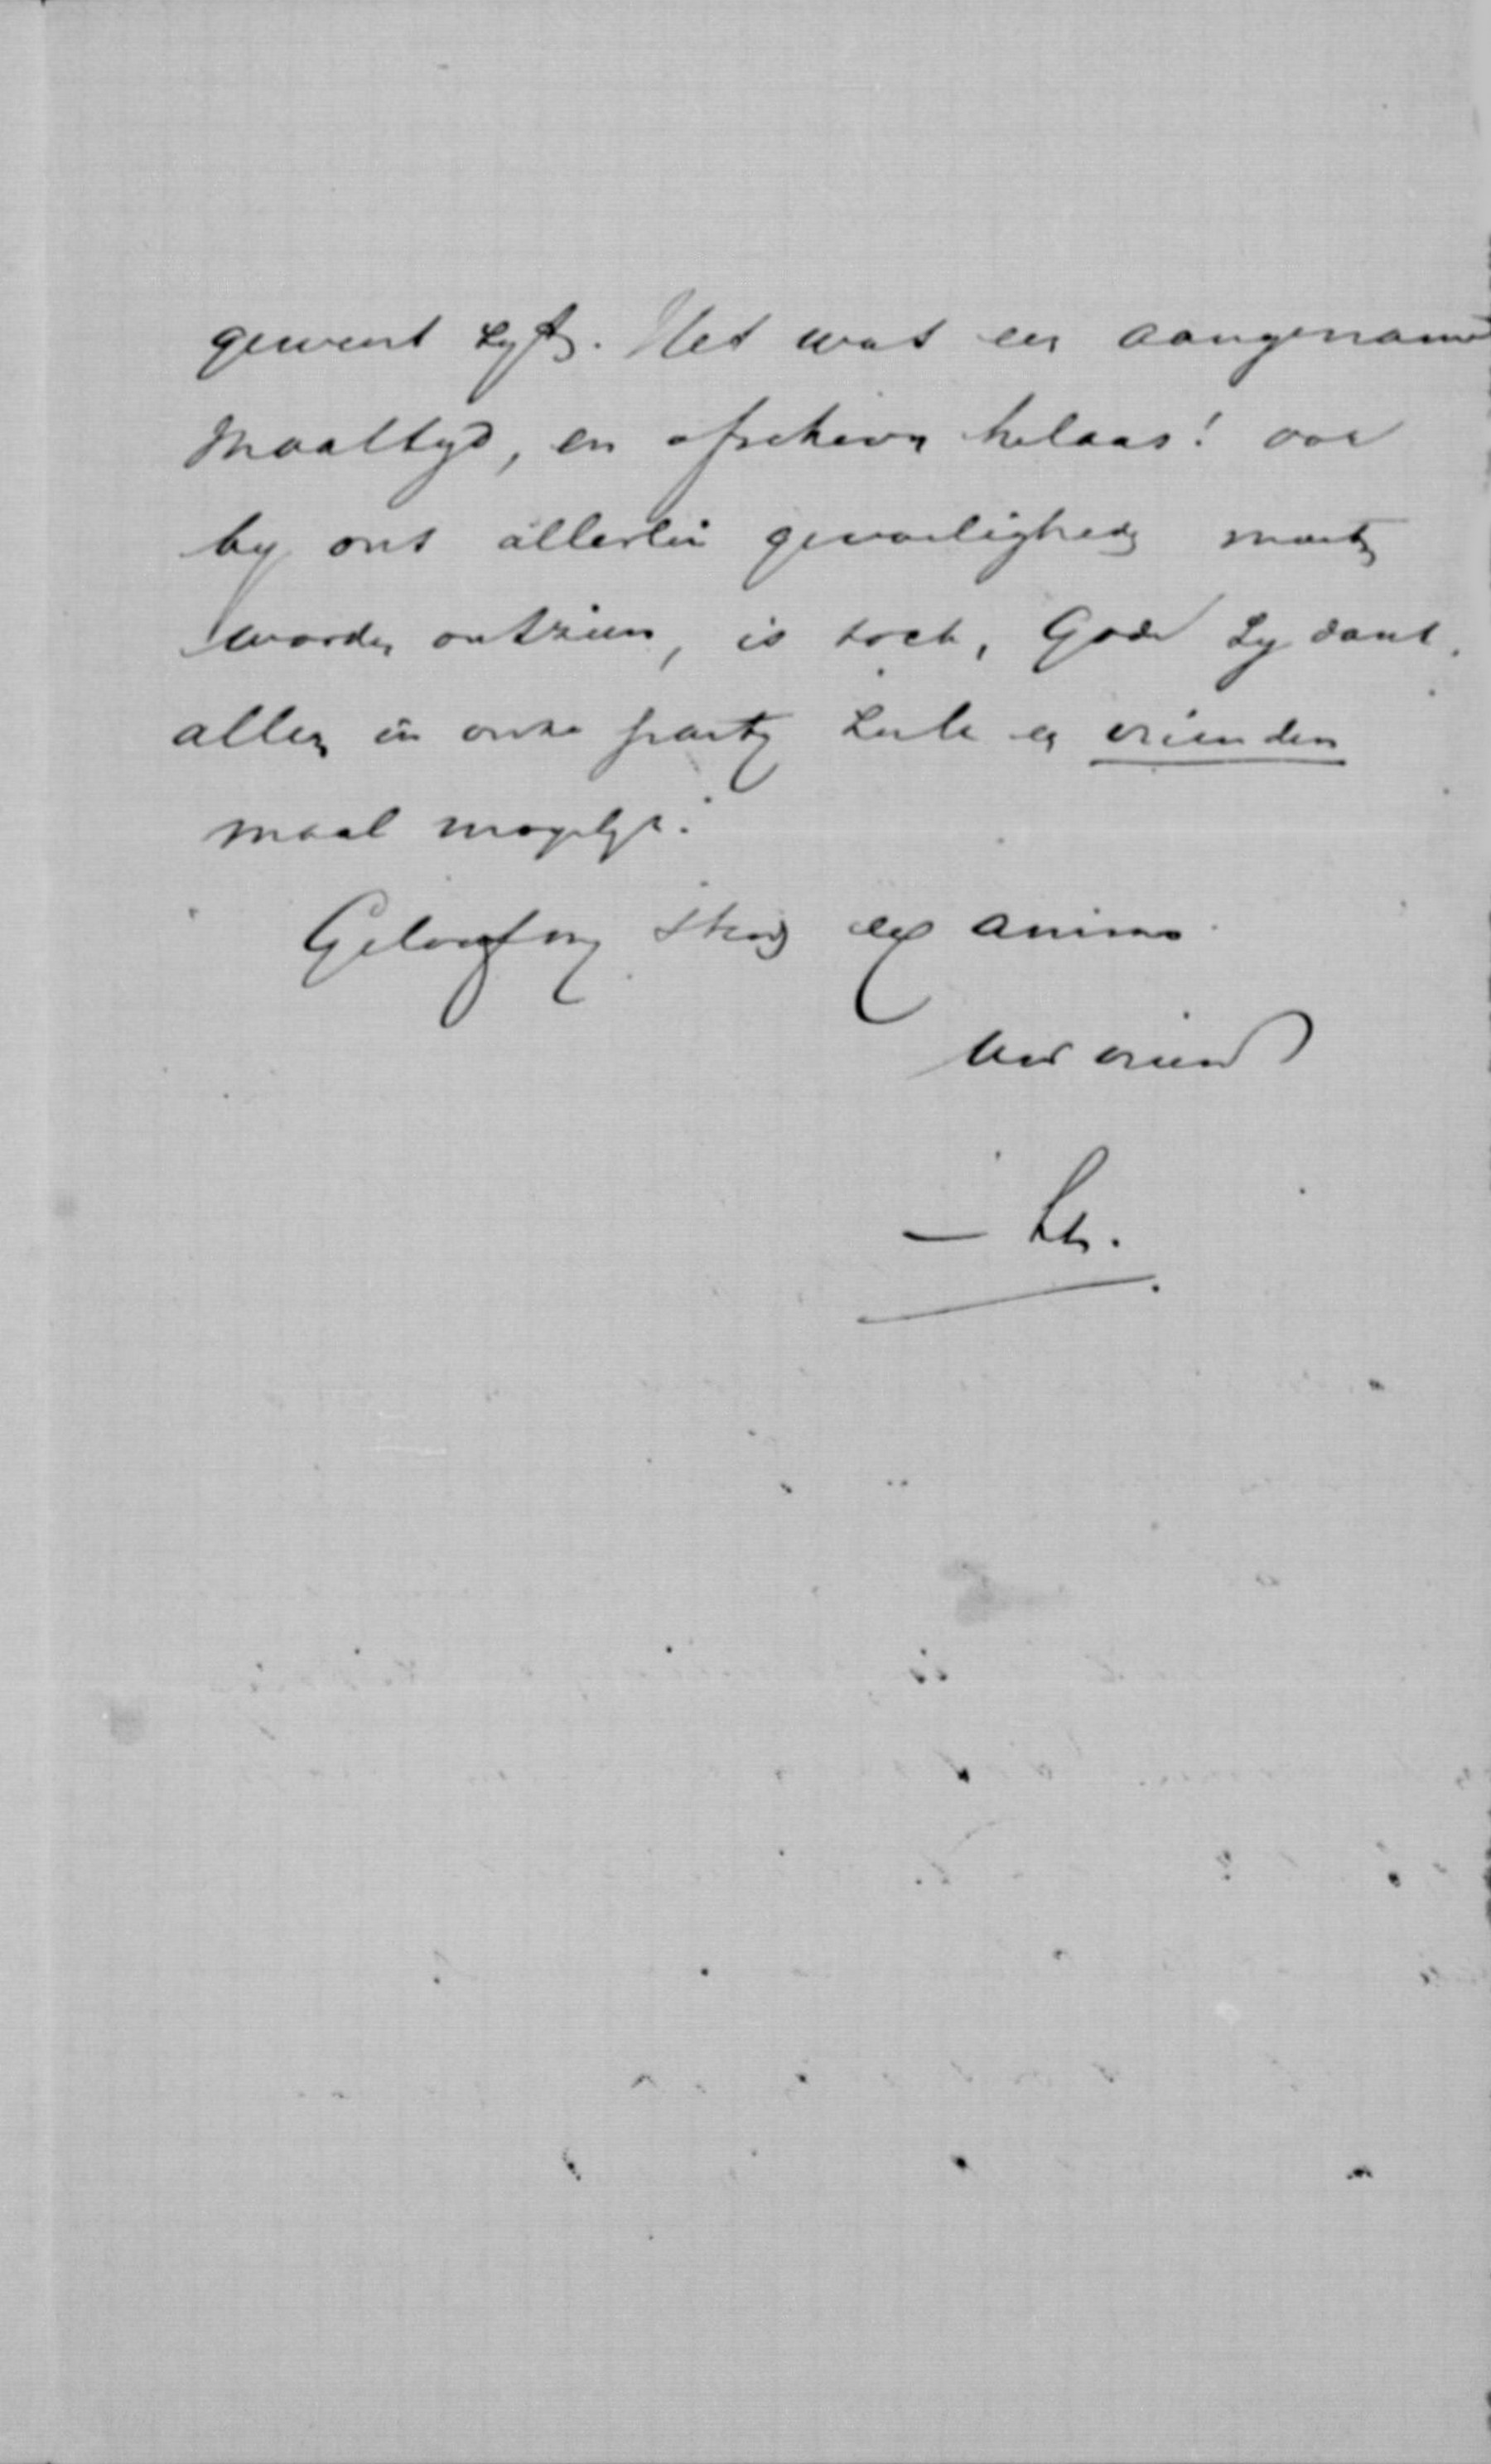 gewenst. Het was een aangename
Maaltyd, en ofschoon helaas! ook
by ons allerlei gevoeligheden moeten
worden ontzien, is toch, Gode zy dank,
alleen in onze party zulk een vrienden
maal mogelyk.
Geloof my steeds ex animo
Uw vriend
— Ls.